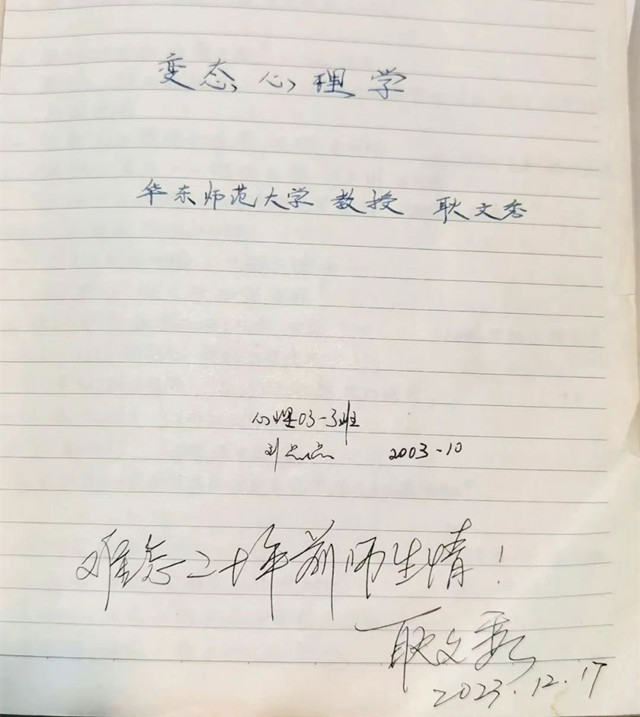 变态心理学
华东师范大学 教授 耿文秀
心理03-3班
刘 2003-10
难忘二十年前师生情！
耿文秀
2023.12.17